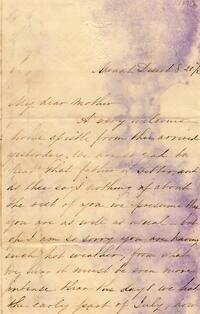 My dear Mother
A very welcome
home epistle from thee arrived
yesterday, we are glad to
hear that father is better and
as thee says nothing of about
the rest of you we presume
you are as well as usual - but
oh I am so sorry you are having
such hot weather, from what
we hear it must be even more
intense than the days we had
the early part of July, how